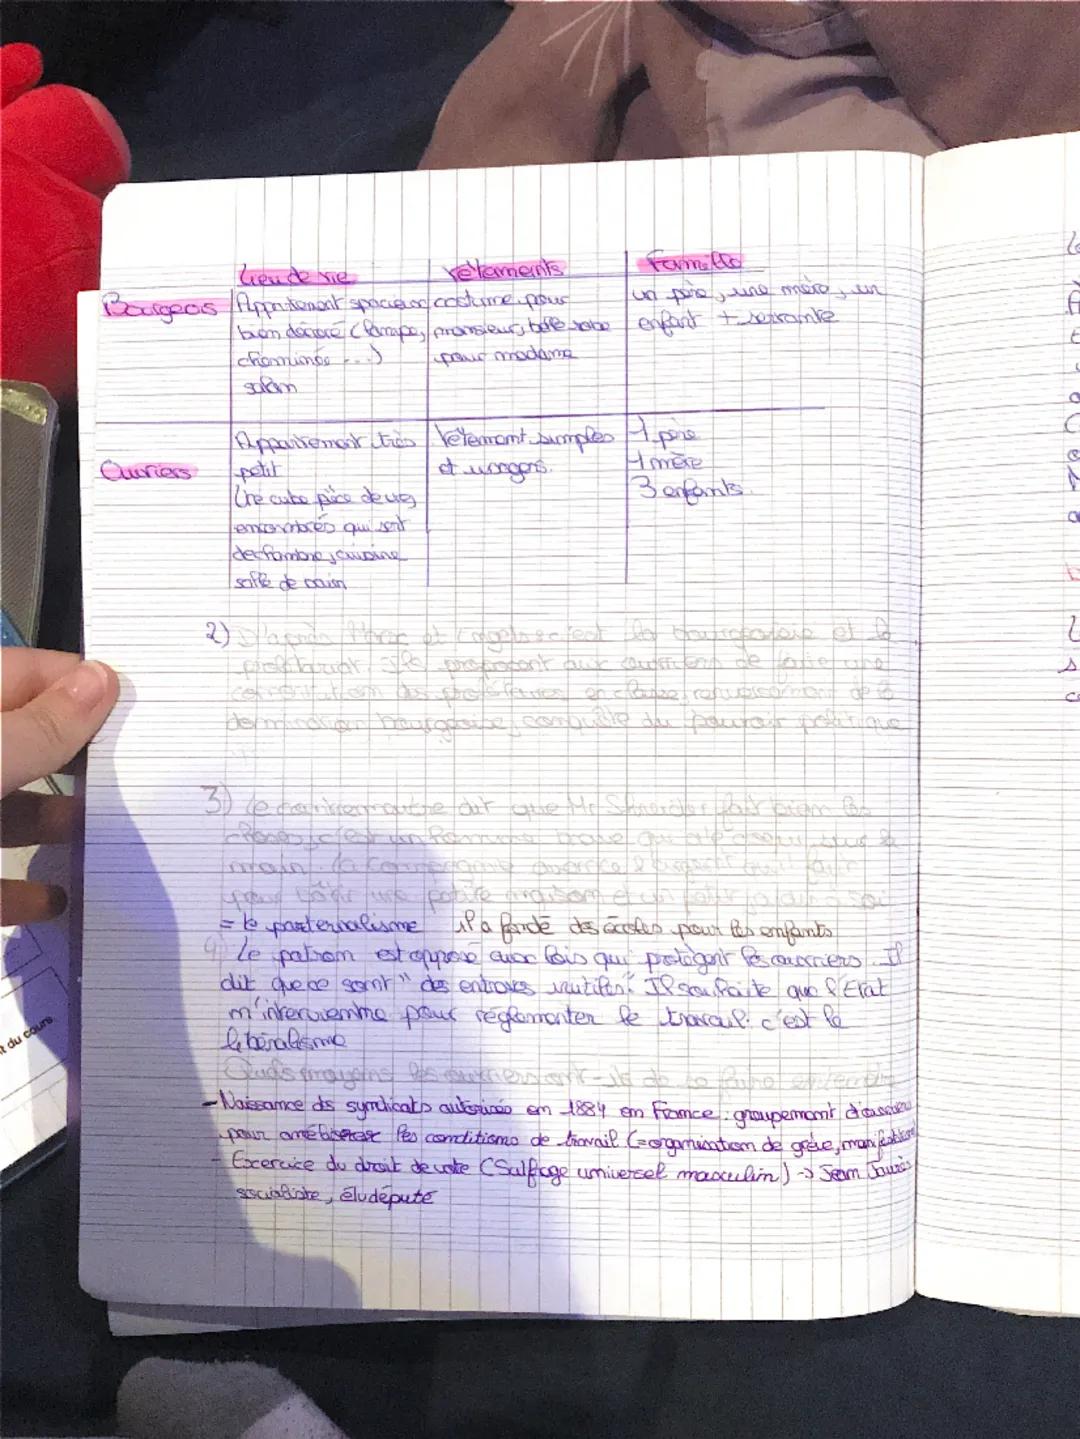 Lieu de vie Vêtements Famille
Bourgeois Appartement spacieux costume pour un père, une mère, un
bien décoré (lampe, monsieur, belle robe enfant + servante
cheminée ...) pour madame
salon
Appartement très Vêtement simples 1 père
Ouvriers petit et usagers. 1 mère
Une pièce de vie 3 enfants.
encombrés qui sert
de chambre, cuisine
salle de bain
2) D'après Marx et Engels la bourgeoisie et le
prolétariat ils proposent aux ouvriers de faire une
constitution des prolétaires en classe, renversement de la
domination bourgeoise, conquête du pouvoir politique
3) le contremaître dit que Mr Shneider fait bien les
choses, c'est un homme brave qui a le cœur sur la
main. La Compagnie avance l'argent qu'il faut
pour bâtir une petite maison et un petit jardin à soi
= le paternalisme il a fondé des écoles pour les enfants
4) Le patron est opposé aux lois qui protègent les ouvriers. Il
dit que ce sont "des entraves inutiles". Il souhaite que l'Etat
n'intervienne pour réglementer le travail. c'est le
libéralisme
Quels moyens les ouvriers ont-ils de se faire entendre
- Naissance ds syndicats autorisés en 1884 en France : groupement d'ouvriers
pour améliorer les conditions de travail (=organisation de grève, manifestations
- Exercice du droit de vote (Suffage universel masculin) -> Jean Jaurès
socialiste, élu député
t du cours